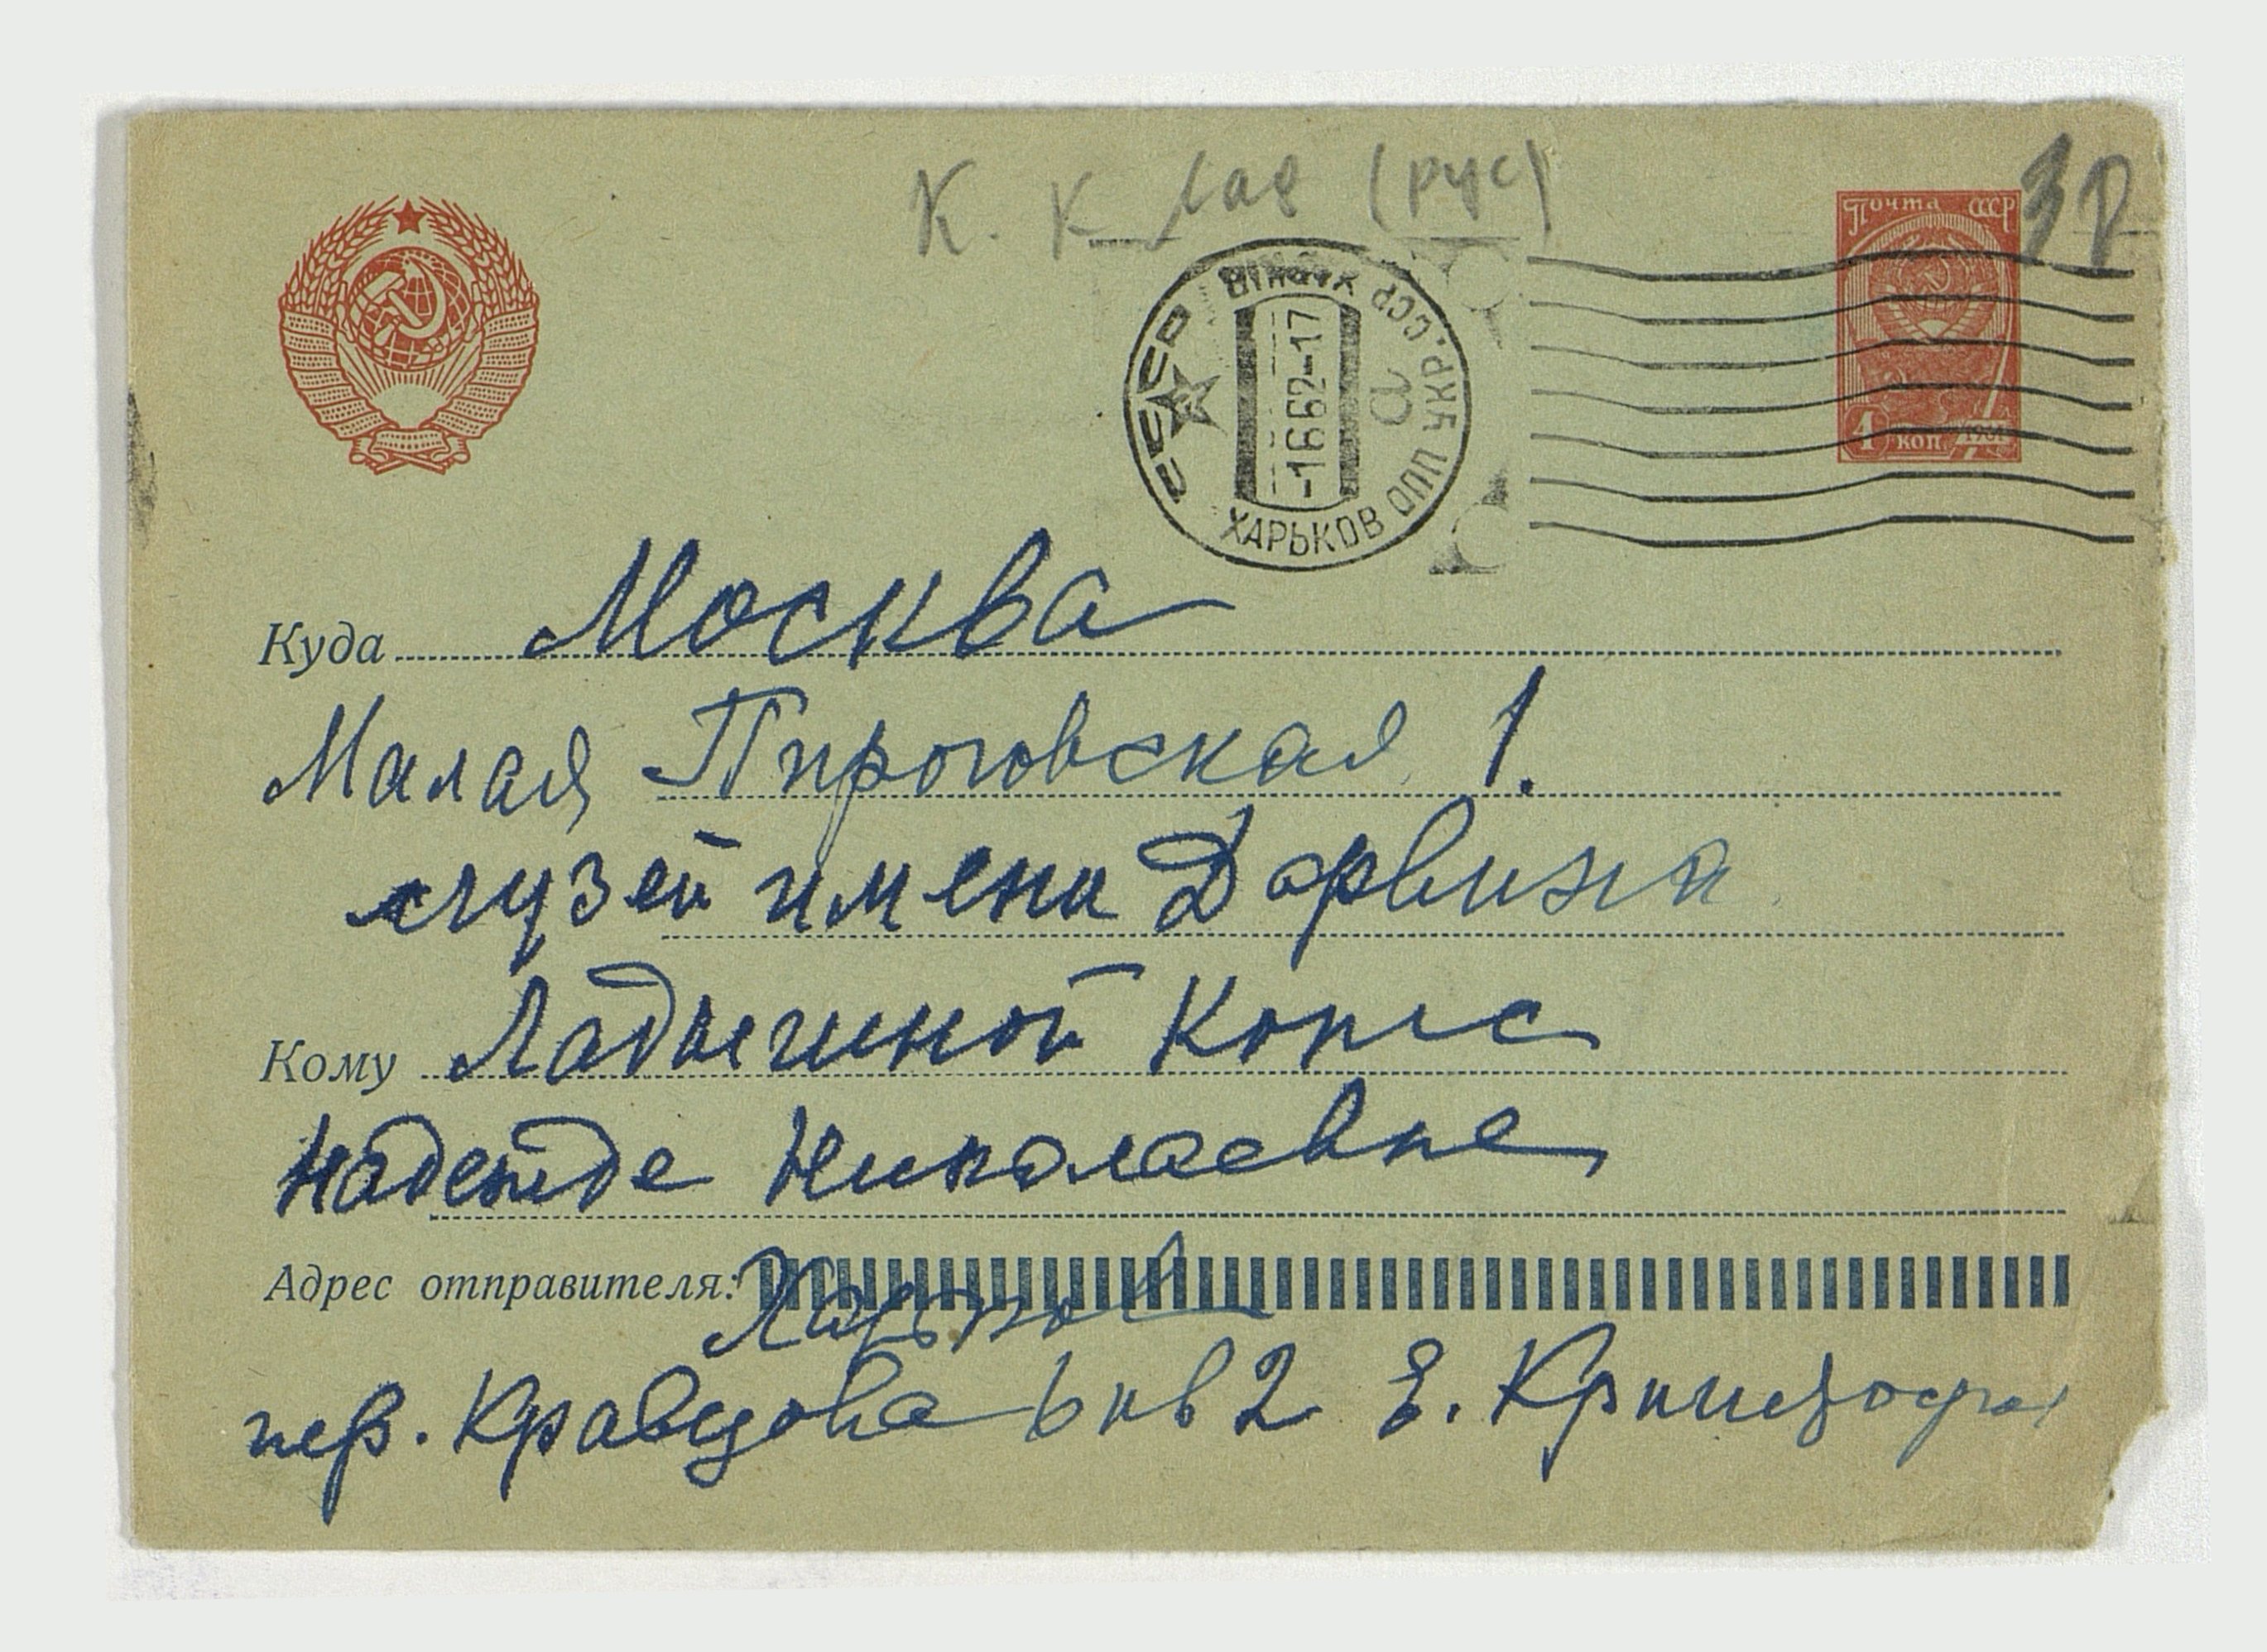 К. К (рус)
3р
Почта СССР
4 коп. 1961
СССР
ХАРЬКОВ ОПП УКР.ССР
-1662-17
а
Куда Москва
Малая Пироговская 1.
музей имени Дарвина
Кому Ладыгиной Котс
Надежде Николаевне
Адрес отправителя: Харьков
пер. Кравцова 6 кв 2 Е. Кришто